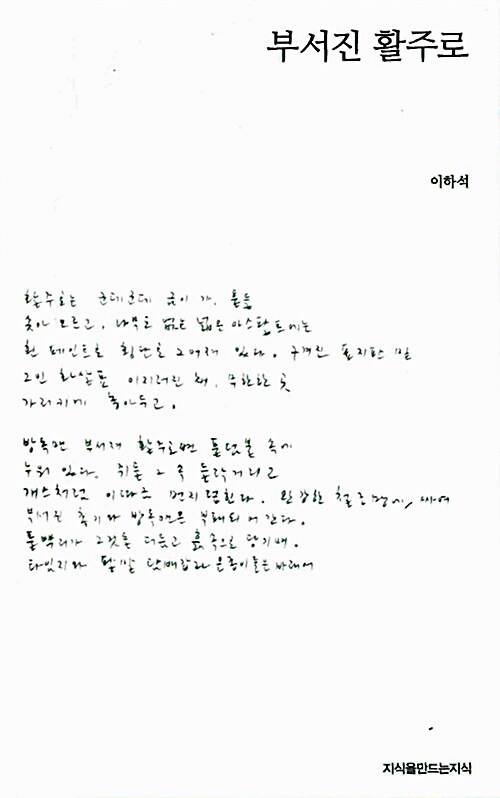 부서진 활주로
이하석
활주로는 군데군데 금이 가, 풀들
솟아 오르고, 나무도 없는 넓은 아스팔트에는
흰 페인트로 횡단로 그어져 있다. 구겨진 표지판 밑
그인 화살표 이지러진 채, 무한한 곳
가리키게 놓아두고.
방독면 부서져 활주로변 풀덤불 속에
누워 있다. 쥐들 그 속 들락거리고
개스처럼 이따금 먼지 덮친다. 완강한 철조망에 싸여
부서진 총기와 방독면은 부패되어 간다.
풀뿌리가 그것들 더듬고 흙 속으로 당기며.
타임지와 팔말 담배갑과 은종이들은 바래어
지식을만드는지식